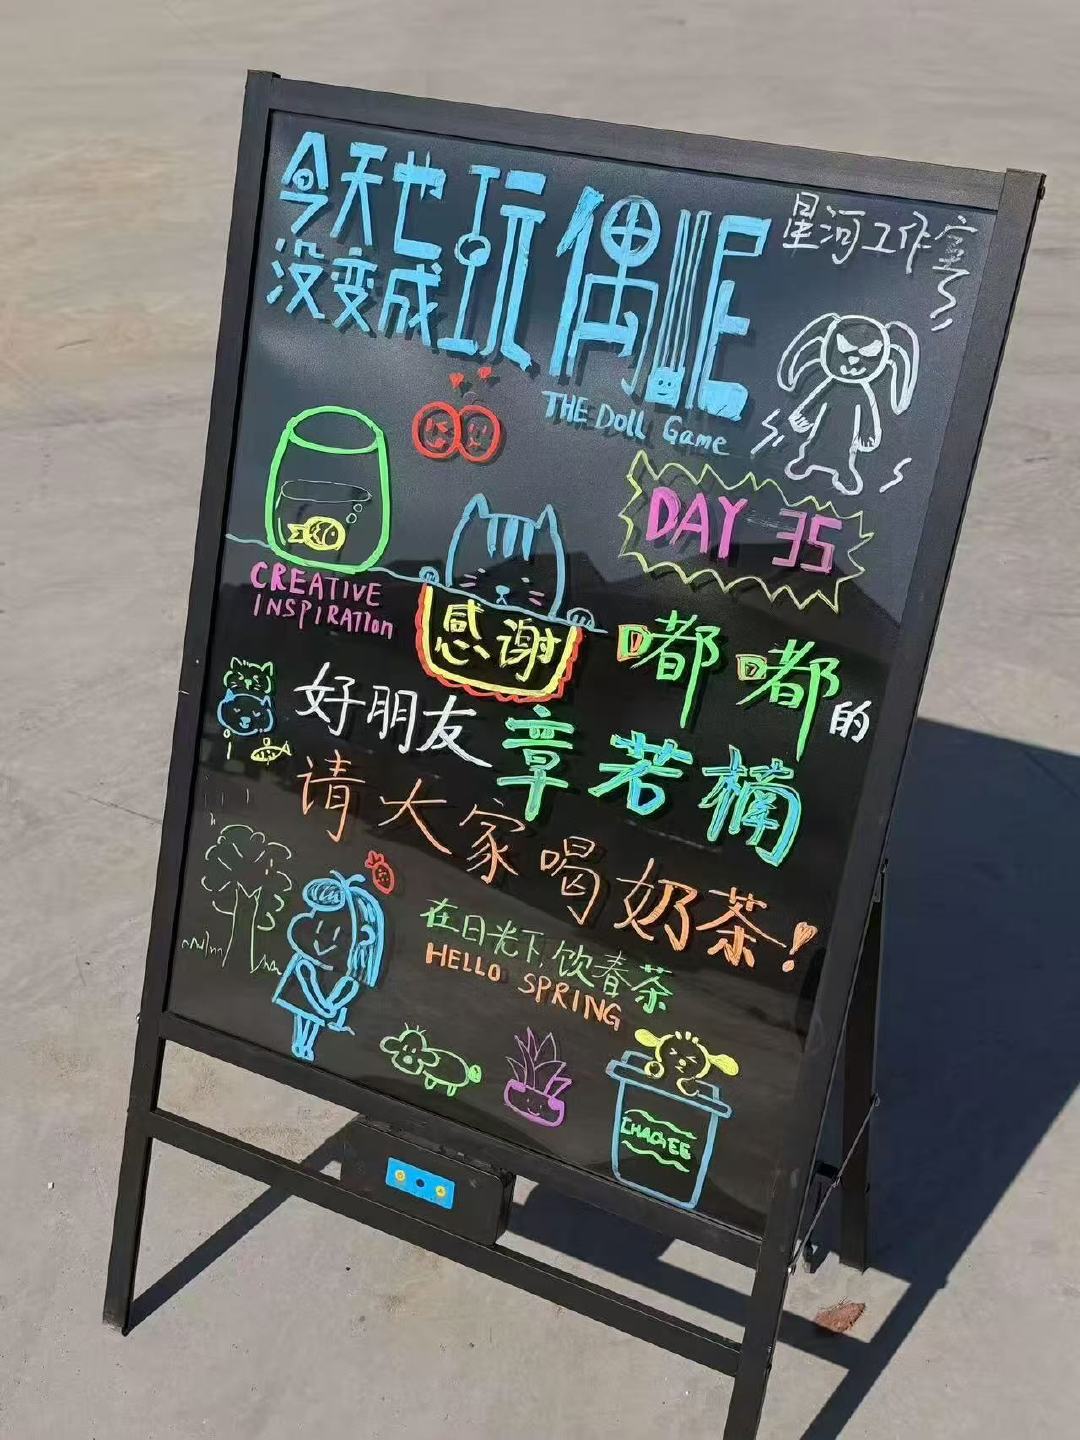 今天也
没变成玩偶呢
星河工作室
THE Doll Game
DAY 35
CREATIVE
INSPIRATION
感谢
嘟嘟的
好朋友章若楠
请大家喝奶茶!
在日光下,饮春茶
HELLO SPRING
CHAGEE